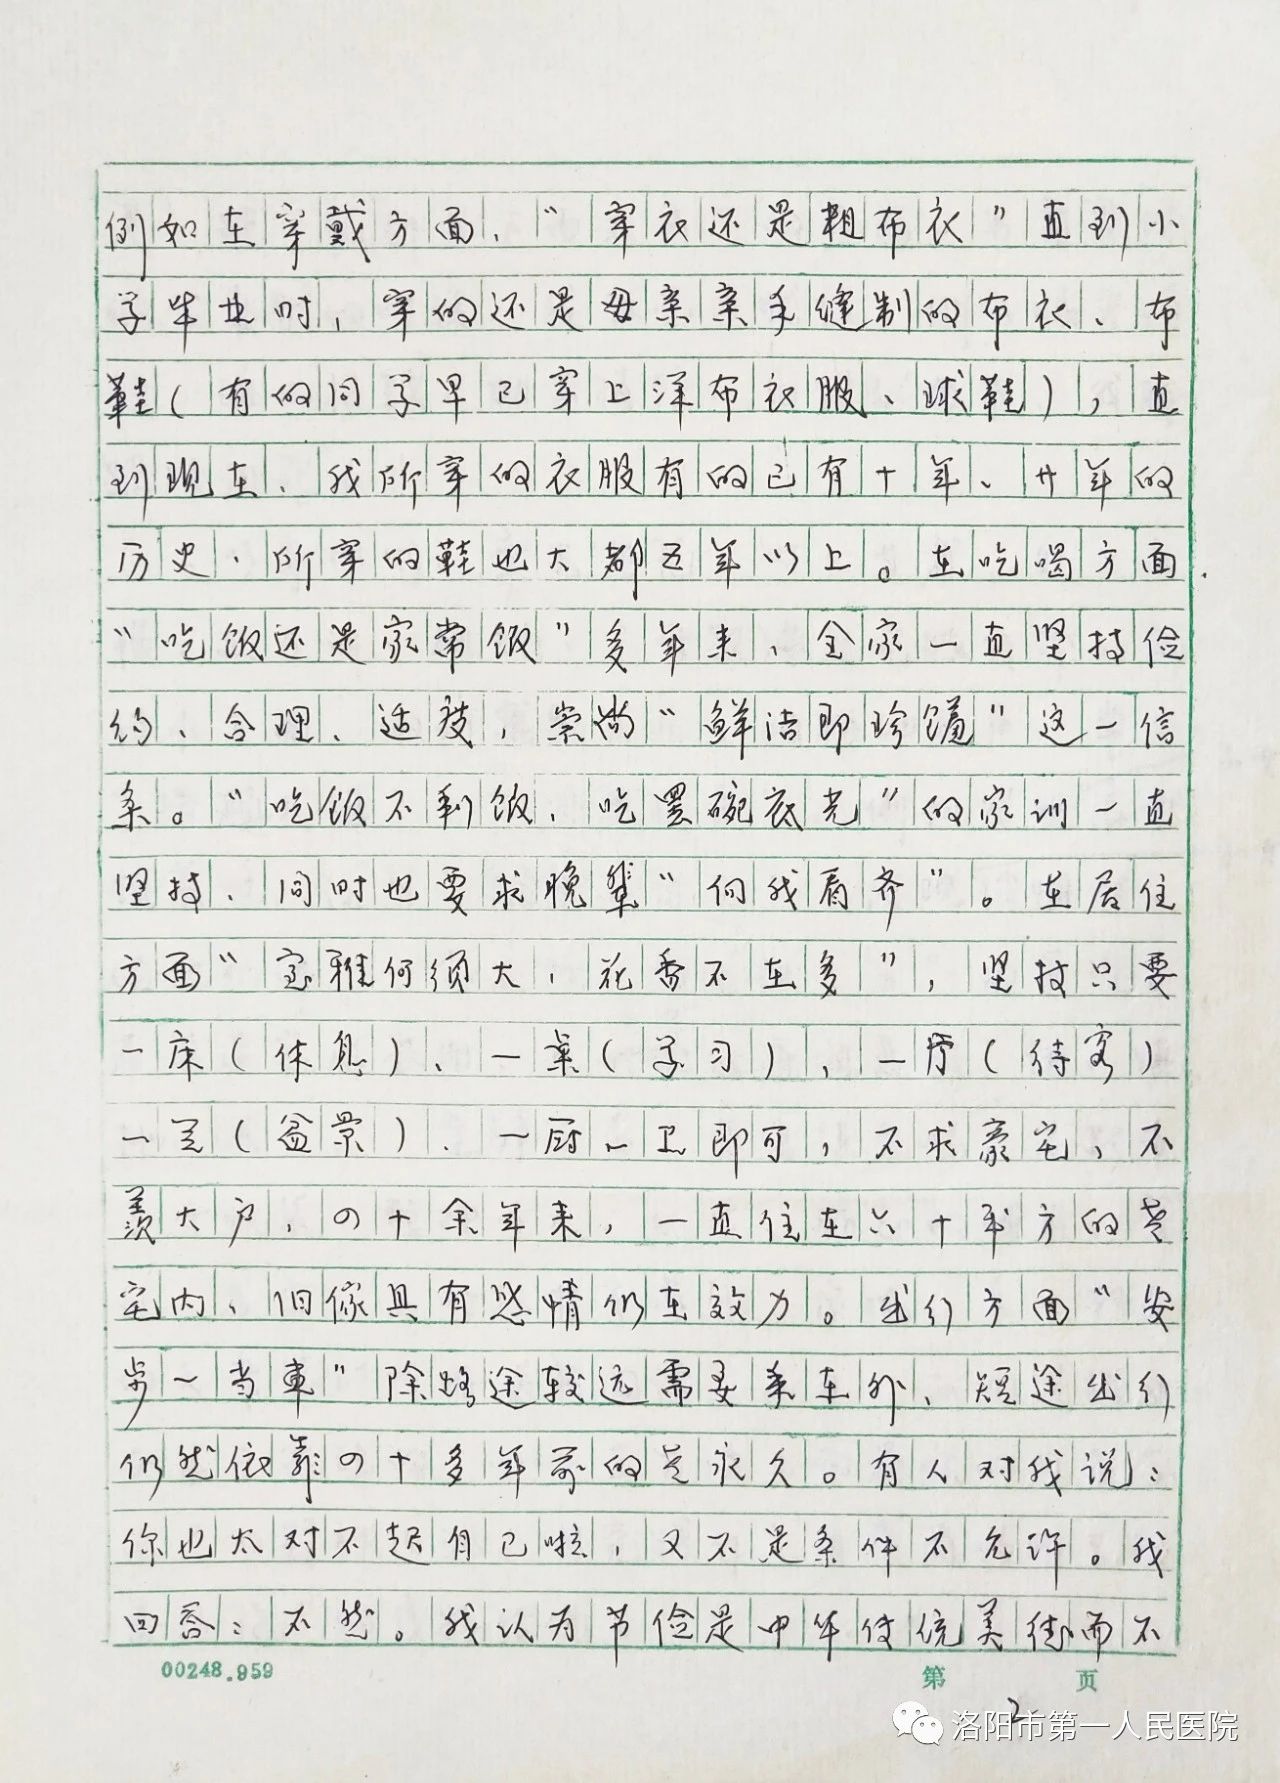 例如在穿戴方面，“穿衣还是粗布衣”直到小
学毕业时，穿的还是母亲亲手缝制的布衣、布
鞋（有的同学早已穿上洋布衣服、球鞋），直
到现在、我所穿的衣服有的已有十年、廿年的
历史，所穿的鞋也大都五年以上。在吃喝方面
“吃饭还是家常饭”多年来，全家一直坚持俭
约、合理、适度，崇尚“鲜洁即珍馐”这一信
条。“吃饭不剩饭，吃罢碗底光”的家训一直
坚持、同时也要求晚辈“向我看齐”。在居住
方面“室雅何须大，花香不在多”，坚持只要
一床（休息）、一桌（学习），一厅（待客）
一景（盆景）、一厨一卫即可，不求豪宅，不
羡大户，四十余年来，一直住在六十平方的老
宅内、旧傢具有感情仍在效力。出行方面“安
步一当車”除路途较远需要乘车外、短途出行
仍然依靠四十多年前的老永久。有人对我说：
你也太对不起自己啦，又不是条件不允许。我
回答：不然。我认为节俭是中华传统美德而不
00248.959
第 页
2
洛阳市第一人民医院